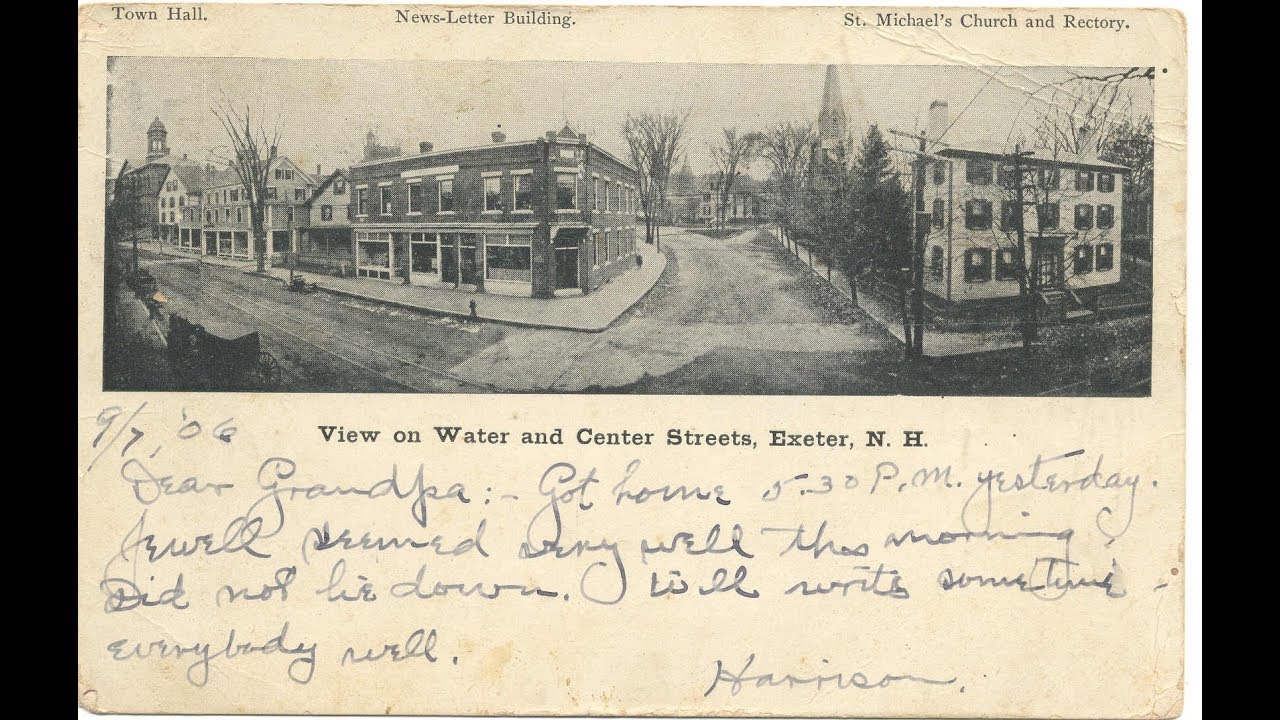 Town Hall. News-Letter Building. St. Michael's Church and Rectory.
View on Water and Center Streets, Exeter, N. H.
9/7, '06
Dear Grandpa:- Got home 5.30 P.M. yesterday.
Jewell seemed very well this morning
Did not lie down. I will write sometime -
everybody well.
Harrison.